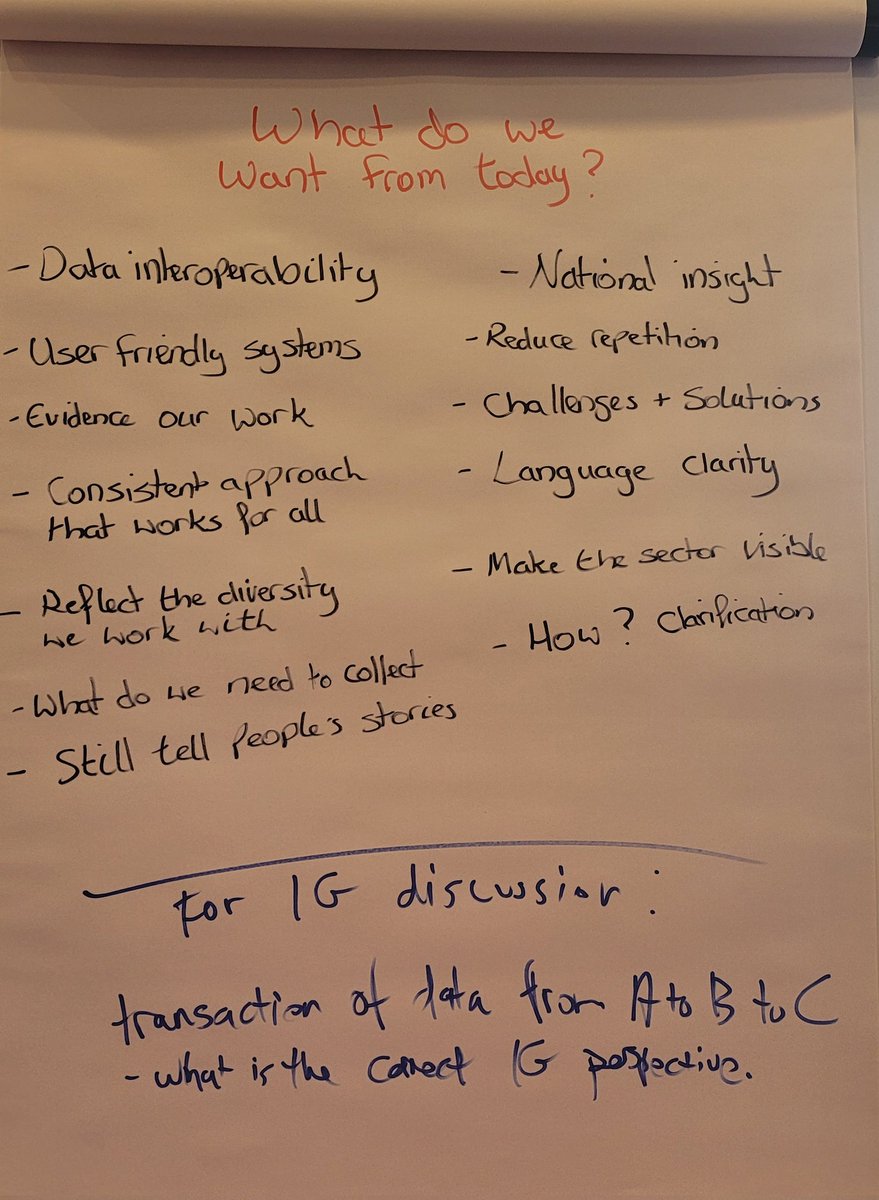 What do we
want from today?
- Data interoperability
- User friendly systems
- Evidence our work
- Consistent approach
that works for all
- Reflect the diversity
we work with
- What do we need to collect
- Still tell people's stories
- National insight
- Reduce repetition
- Challenges + Solutions
- Language clarity
- Make the sector visible
- How? Clarification
For IG discussion:
transaction of data from A to B to C
- what is the correct IG pespective.